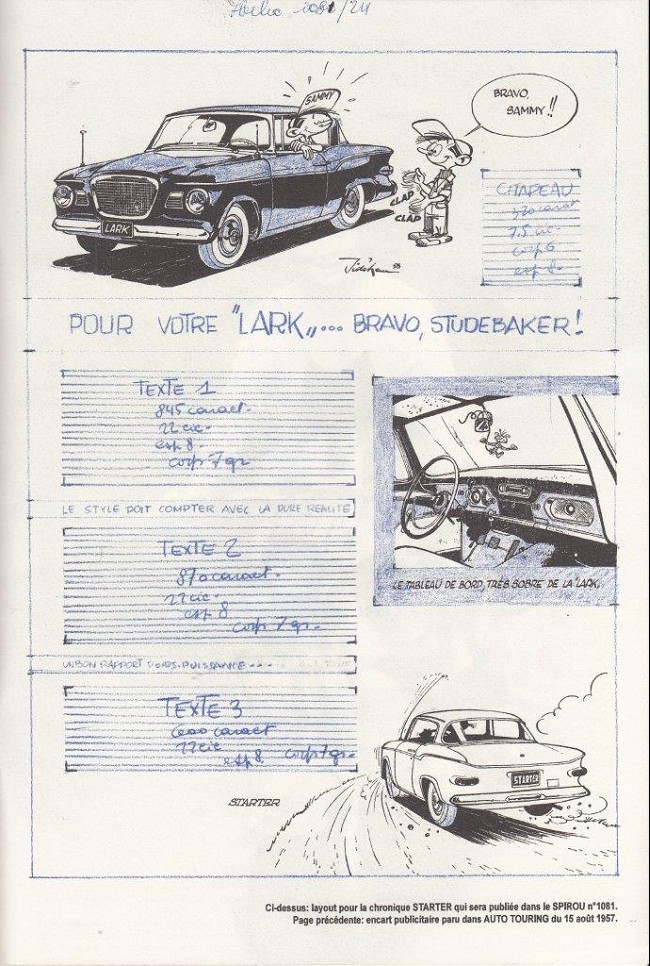 1081/24
SAMMY
BRAVO,
SAMMY!!
CLAP
CLAP
LARK
Jidéhem 58
CHAPEAU
320 caract
7,5 cic.
corp 6
esp 8.
POUR VOTRE "LARK„... BRAVO, STUDEBAKER!
TEXTE 1
845 caract.
22 cic.
esp 8.
corp 7 gr.
LE STYLE DOIT COMPTER AVEC LA DURE REALITE
TEXTE 2
870 caract.
22 cic.
esp 8
corp 7 gr.
LE TABLEAU DE BORD, TRÈS SOBRE DE LA LARK.
UN BON RAPPORT POIDS-PUISSANCE...
TEXTE 3
600 caract
22 cic
esp 8 corp 7 gr.
STARTER
STARTER
Ci-dessus: layout pour la chronique STARTER qui sera publiée dans le SPIROU n°1081.
Page précédente: encart publicitaire paru dans AUTO TOURING du 15 août 1957.